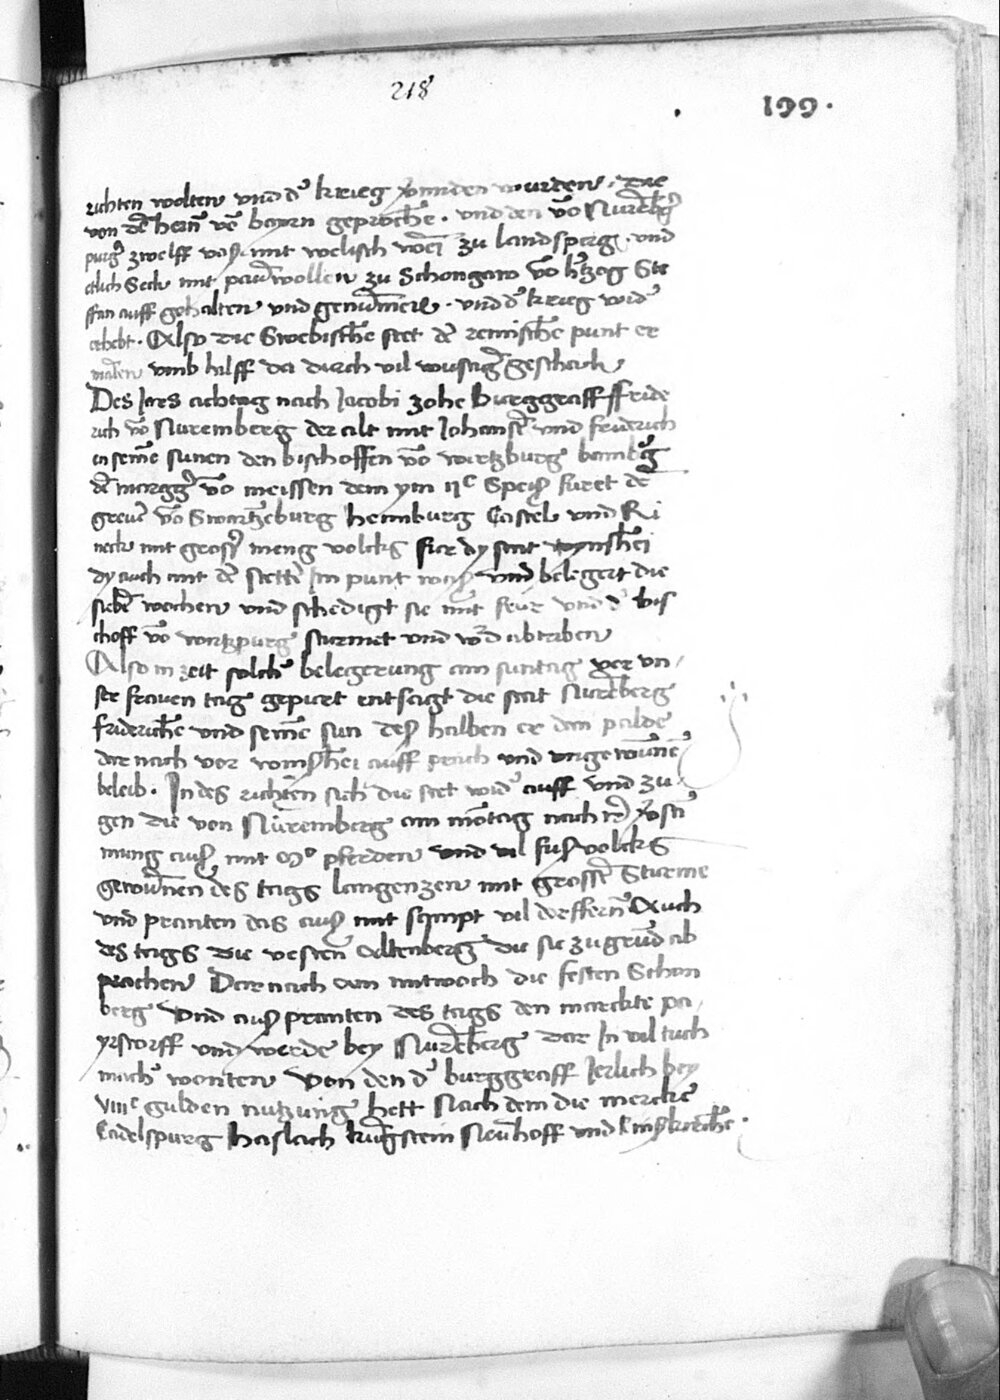 218
199.
richten wolten vnd d' krieg v'miden wurden. Die
von dē hern̄ vō bayrn geprochē. vnd den vō Nurēb'g
purg' zwelff vaß mit welisch wein zu landsperg. vnd
etlich Seck mit pawmwollen zu Schongaw vō h'tzog Ste
ffan auff gehalten vnd genūmen. vnd d' krieg wid'
erhebt. Also die Swebischē stet dē reinischē punt er
manten vmb hilff da durch vil wustag' geschach
Des Jars achtag nach Jacobi zohe Burggraff ffride
rich vō Nuremberg der alt mit Johansē vnd friderich
seinē sunen den bischoffen vō wirtzburg bamb'g
dē marggrē vō meissen dem ym IIc Speiß furet dē
grevē vō Swartzeburg hennburg Castel vnd Ri
neck mit groß' meng volcks fur dy stat wynßhei
dy auch mit dē stettē Im punt waß vnd belegert die
siebē wochen vnd schedigt sie mit feur vnd d' bis
choff vō wirtzpurg sturmet vnd w'd abtriben
Also in zeit solch' belegerung am suntag vor vn
ser frawen tag gepurt entsagt die stat Nurēberg
friderichē vnd seinē sun deß halben er dan palde
dar nach vor wynßhei auff prach vnd vngewunnē
beleib. In des richten sich die stet wid' auff vnd zu
gen die von Nuremberg am mōtag nach
mung auß mit pferden vnd vil fußvolcks
gewūnnen des tags langenzen mit grossē Sturme
vnd pranten das auß mit sampt vil dorffern̄ Auch
des tags die vesten Altenberg die sie zu grūd ab
prachen Dar nach am mitwoch die festen Schon
berg vnd auß pranten des tags den marckte pa
yrstorff vnd werde bey Nurēberg dar In vil tuch
mach' wonten von den d' burggraff Jerlich bey
VIIIc gulden nutzung hett Nach dem die merckte
Cadelspurg haslach kungstein Newhoff vnd Linßkirchē.